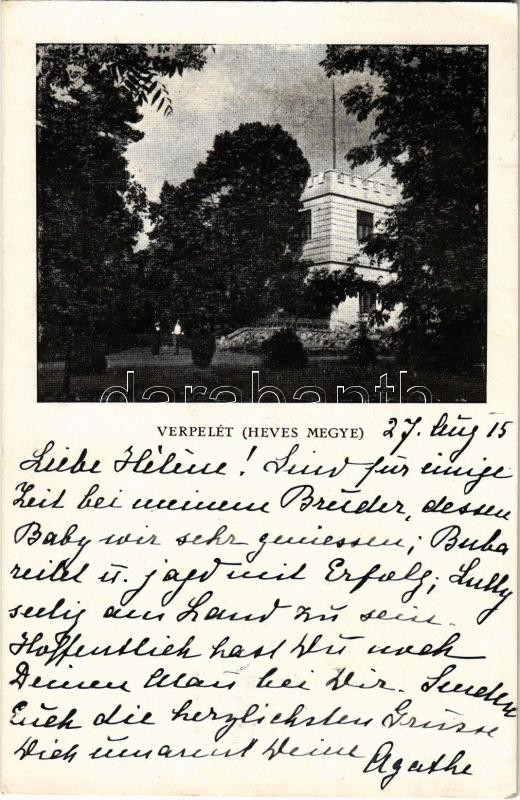 darabanth
VERPELÉT (HEVES MEGYE) 27. Aug 15
Liebe Hélène! Sind für einige
Zeit bei meinem Bruder, dessen
Baby wir sehr geniessen; Buba
reitet u. jagd mit Erfolg; Lully
selig am Land zu sein.
Hoffentlich hast Du noch
Deinen Mann bei Dir. Senden
Euch die herzlichsten Grüsse
Dich umarmt Deine
Agathe